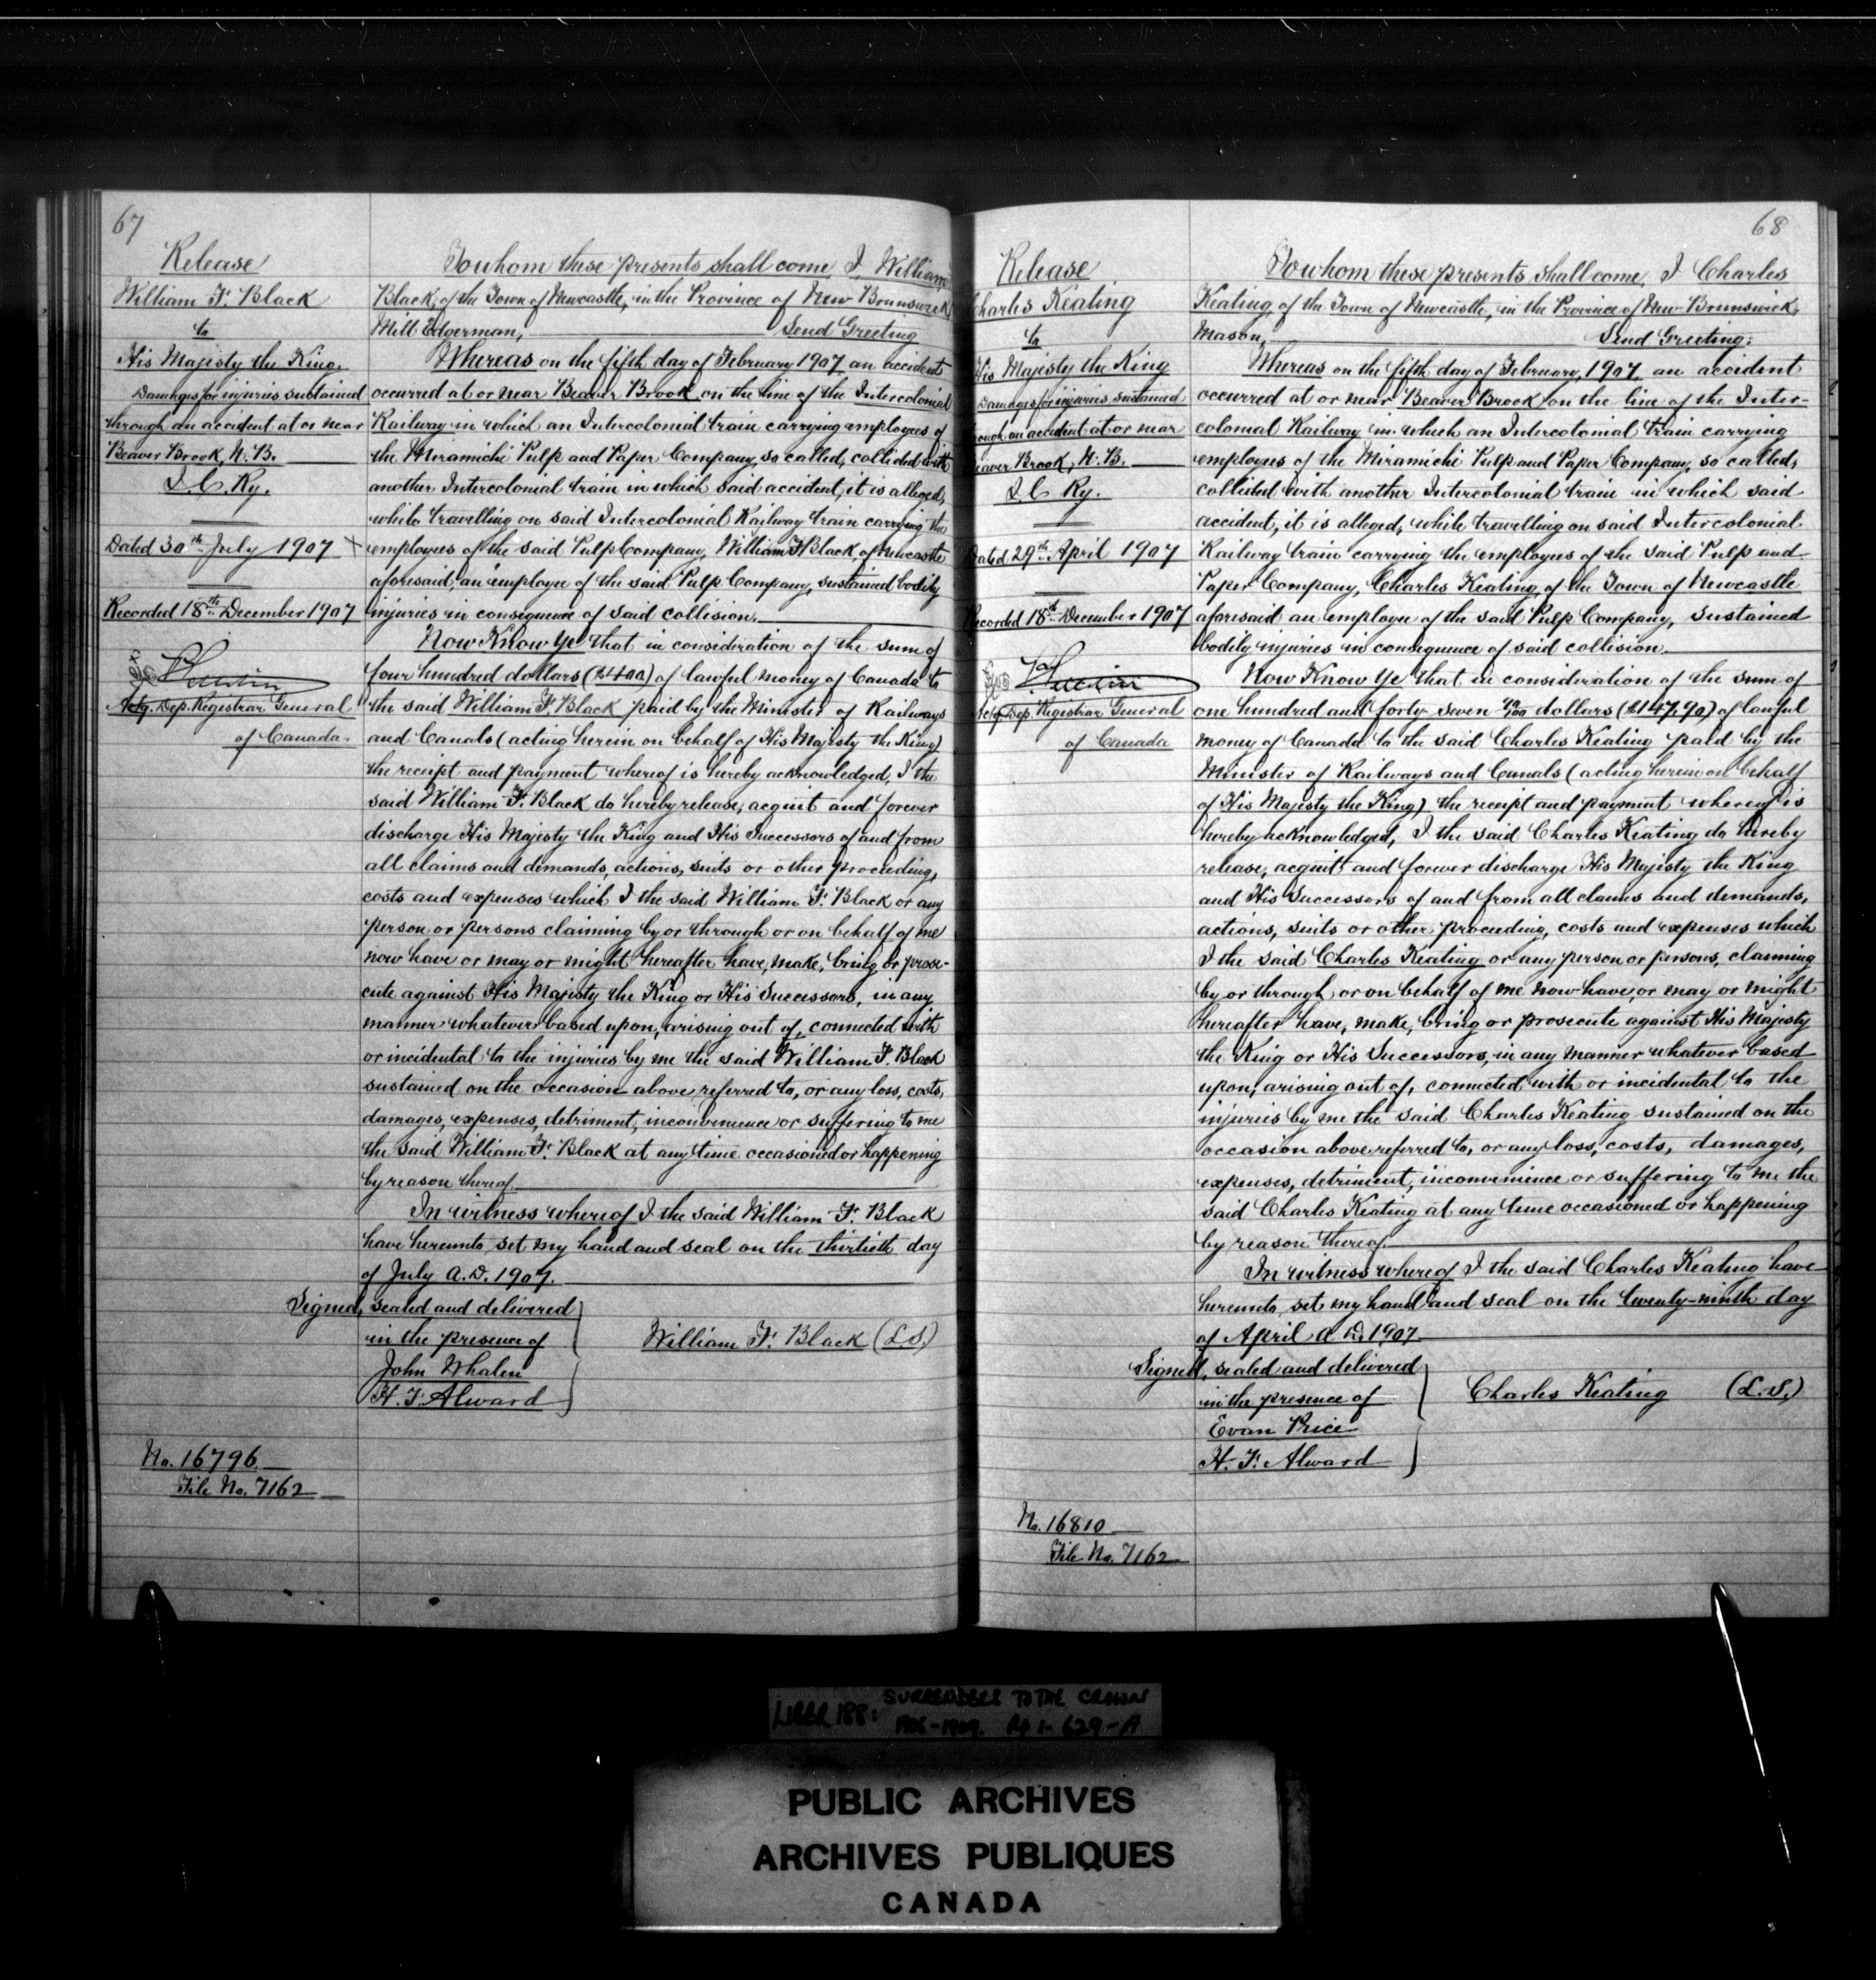 67
Release
William F. Black
to
His Majesty the King.
Damages for injuries sustained
through an accident at or near
Beaver Brook, N.B.
I.C. Ry.
Dated 30th July 1907
Recorded 18th December 1907
Actg. Dep. Registrar General
of Canada.
To whom these presents shall come, I, William
Black, of the Town of Newcastle, in the Province of New Brunswick,
Mill Edgerman, Send Greeting
Whereas on the fifth day of February 1907, an accident
occurred at or near Beaver Brook, on the line of the Intercolonial
Railway in which an Intercolonial train carrying employees of
the Miramichi Pulp and Paper Company, so called, collided with
another Intercolonial train in which said accident, it is alleged,
while travelling on said Intercolonial Railway train carrying the
employees of the said Pulp Company, William F. Black, of Newcastle
aforesaid, an employee of the said Pulp Company, sustained bodily
injuries in consequence of said collision.
Now Know Ye that in consideration of the sum of
four hundred dollars ($400) of lawful money of Canada to
the said William F. Black paid by the Minister of Railways
and Canals (acting herein on behalf of His Majesty the King)
the receipt and payment whereof is hereby acknowledged, I the
said William F. Black do hereby release, acquit and forever
discharge His Majesty the King and His Successors of and from
all claims and demands, actions, suits or other proceeding,
costs and expenses which I the said William F. Black or any
person or persons claiming by or through or on behalf of me
now have or may or might hereafter have, make, bring or prose-
cute against His Majesty the King or His Successors, in any
manner whatever based upon, arising out of, connected with
or incidental to the injuries by me the said William F. Black
sustained on the occasion above referred to, or any loss, costs,
damages, expenses, detriment, inconvenience or suffering to me
the said William F. Black at any time occasioned or happening
by reason thereof.
In witness whereof I the said William F. Black
have hereunto set my hand and seal on the thirtieth day
of July A.D. 1907.
Signed, sealed and delivered
in the presence of
John Whalen
H. F. Alward
William F. Black (L.S.)
No. 16796
File No. 7162
68
Release
Charles Keating
to
His Majesty the King
Damages for injuries sustained
through an accident at or near
Beaver Brook, N.B.
I.C. Ry.
Dated 29th April 1907
Recorded 18th December 1907
Actg. Dep. Registrar General
of Canada
To whom these presents shall come, I Charles
Keating, of the Town of Newcastle, in the Province of New Brunswick,
Mason, Send Greeting:
Whereas on the fifth day of February, 1907, an accident
occurred at or near Beaver Brook on the line of the Inter-
colonial Railway in which an Intercolonial train carrying
employees of the Miramichi Pulp and Paper Company, so called,
collided with another Intercolonial train in which said
accident, it is alleged, while travelling on said Intercolonial
Railway train carrying the employees of the said Pulp and
Paper Company, Charles Keating, of the Town of Newcastle
aforesaid an employee of the said Pulp Company, sustained
bodily injuries in consequence of said collision.
Now Know Ye that in consideration of the sum of
one hundred and forty seven 90/100 dollars ($147.90) of lawful
money of Canada to the said Charles Keating paid by the
Minister of Railways and Canals (acting herein on behalf
of His Majesty the King) the receipt and payment whereof is
hereby acknowledged, I the said Charles Keating do hereby
release, acquit and forever discharge His Majesty the King
and His Successors of and from all claims and demands,
actions, suits or other proceeding, costs and expenses which
I the said Charles Keating or any person or persons, claiming
by or through or on behalf of me now have, or may or might
hereafter have, make, bring or prosecute against His Majesty
the King or His Successors, in any manner whatever based
upon, arising out of, connected with or incidental to the
injuries by me the said Charles Keating sustained on the
occasion above referred to, or any loss, costs, damages,
expenses, detriment, inconvenience or suffering to me the
said Charles Keating at any time occasioned or happening
by reason thereof.
In witness whereof I the said Charles Keating have
hereunto set my hand and seal on the twenty-ninth day
of April A.D. 1907
Signed, sealed and delivered
in the presence of
Evan Price
H. F. Alward
Charles Keating (L.S.)
No. 16810
File No. 7162
LIBER 188: SURRENDERS TO THE CROWN
1906-1909. Pp 1-629-A
PUBLIC ARCHIVES
ARCHIVES PUBLIQUES
CANADA